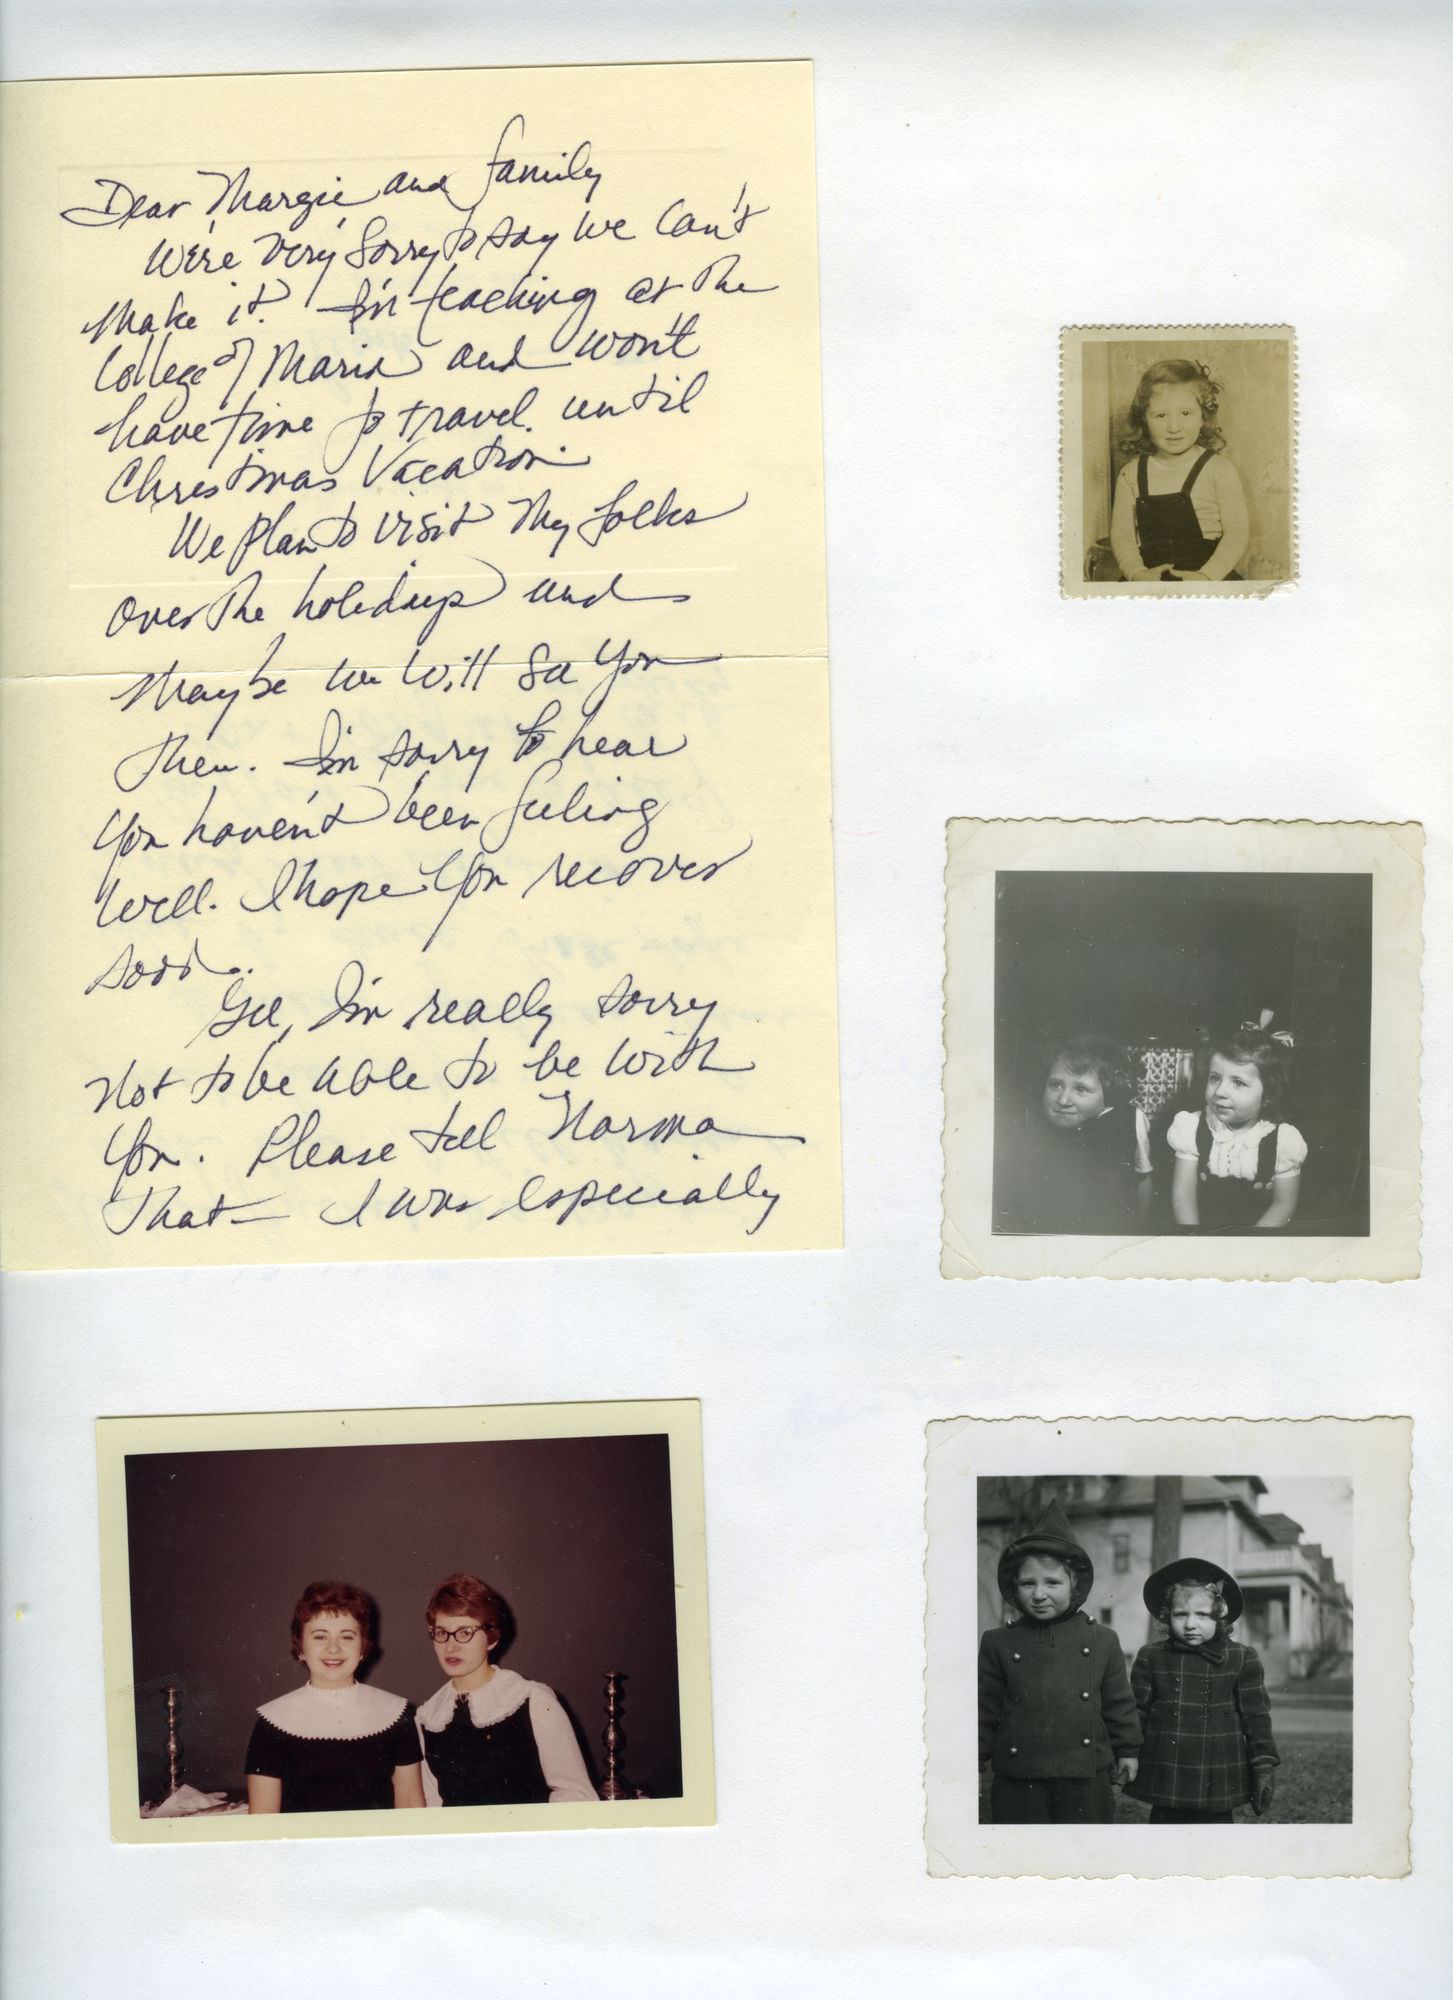 Dear Margie and family
We're very sorry to say we can't
make it. I'm teaching at the
College of Marin and won't
have time to travel until
Christmas Vacation.
We plan to visit my folks
over the holidays and
maybe we will see you
then. I'm sorry to hear
you haven't been feeling
well. I hope you recover
soon.
Gee, I'm really sorry
not to be able to be with
you. Please tell Norma
that — I was especially